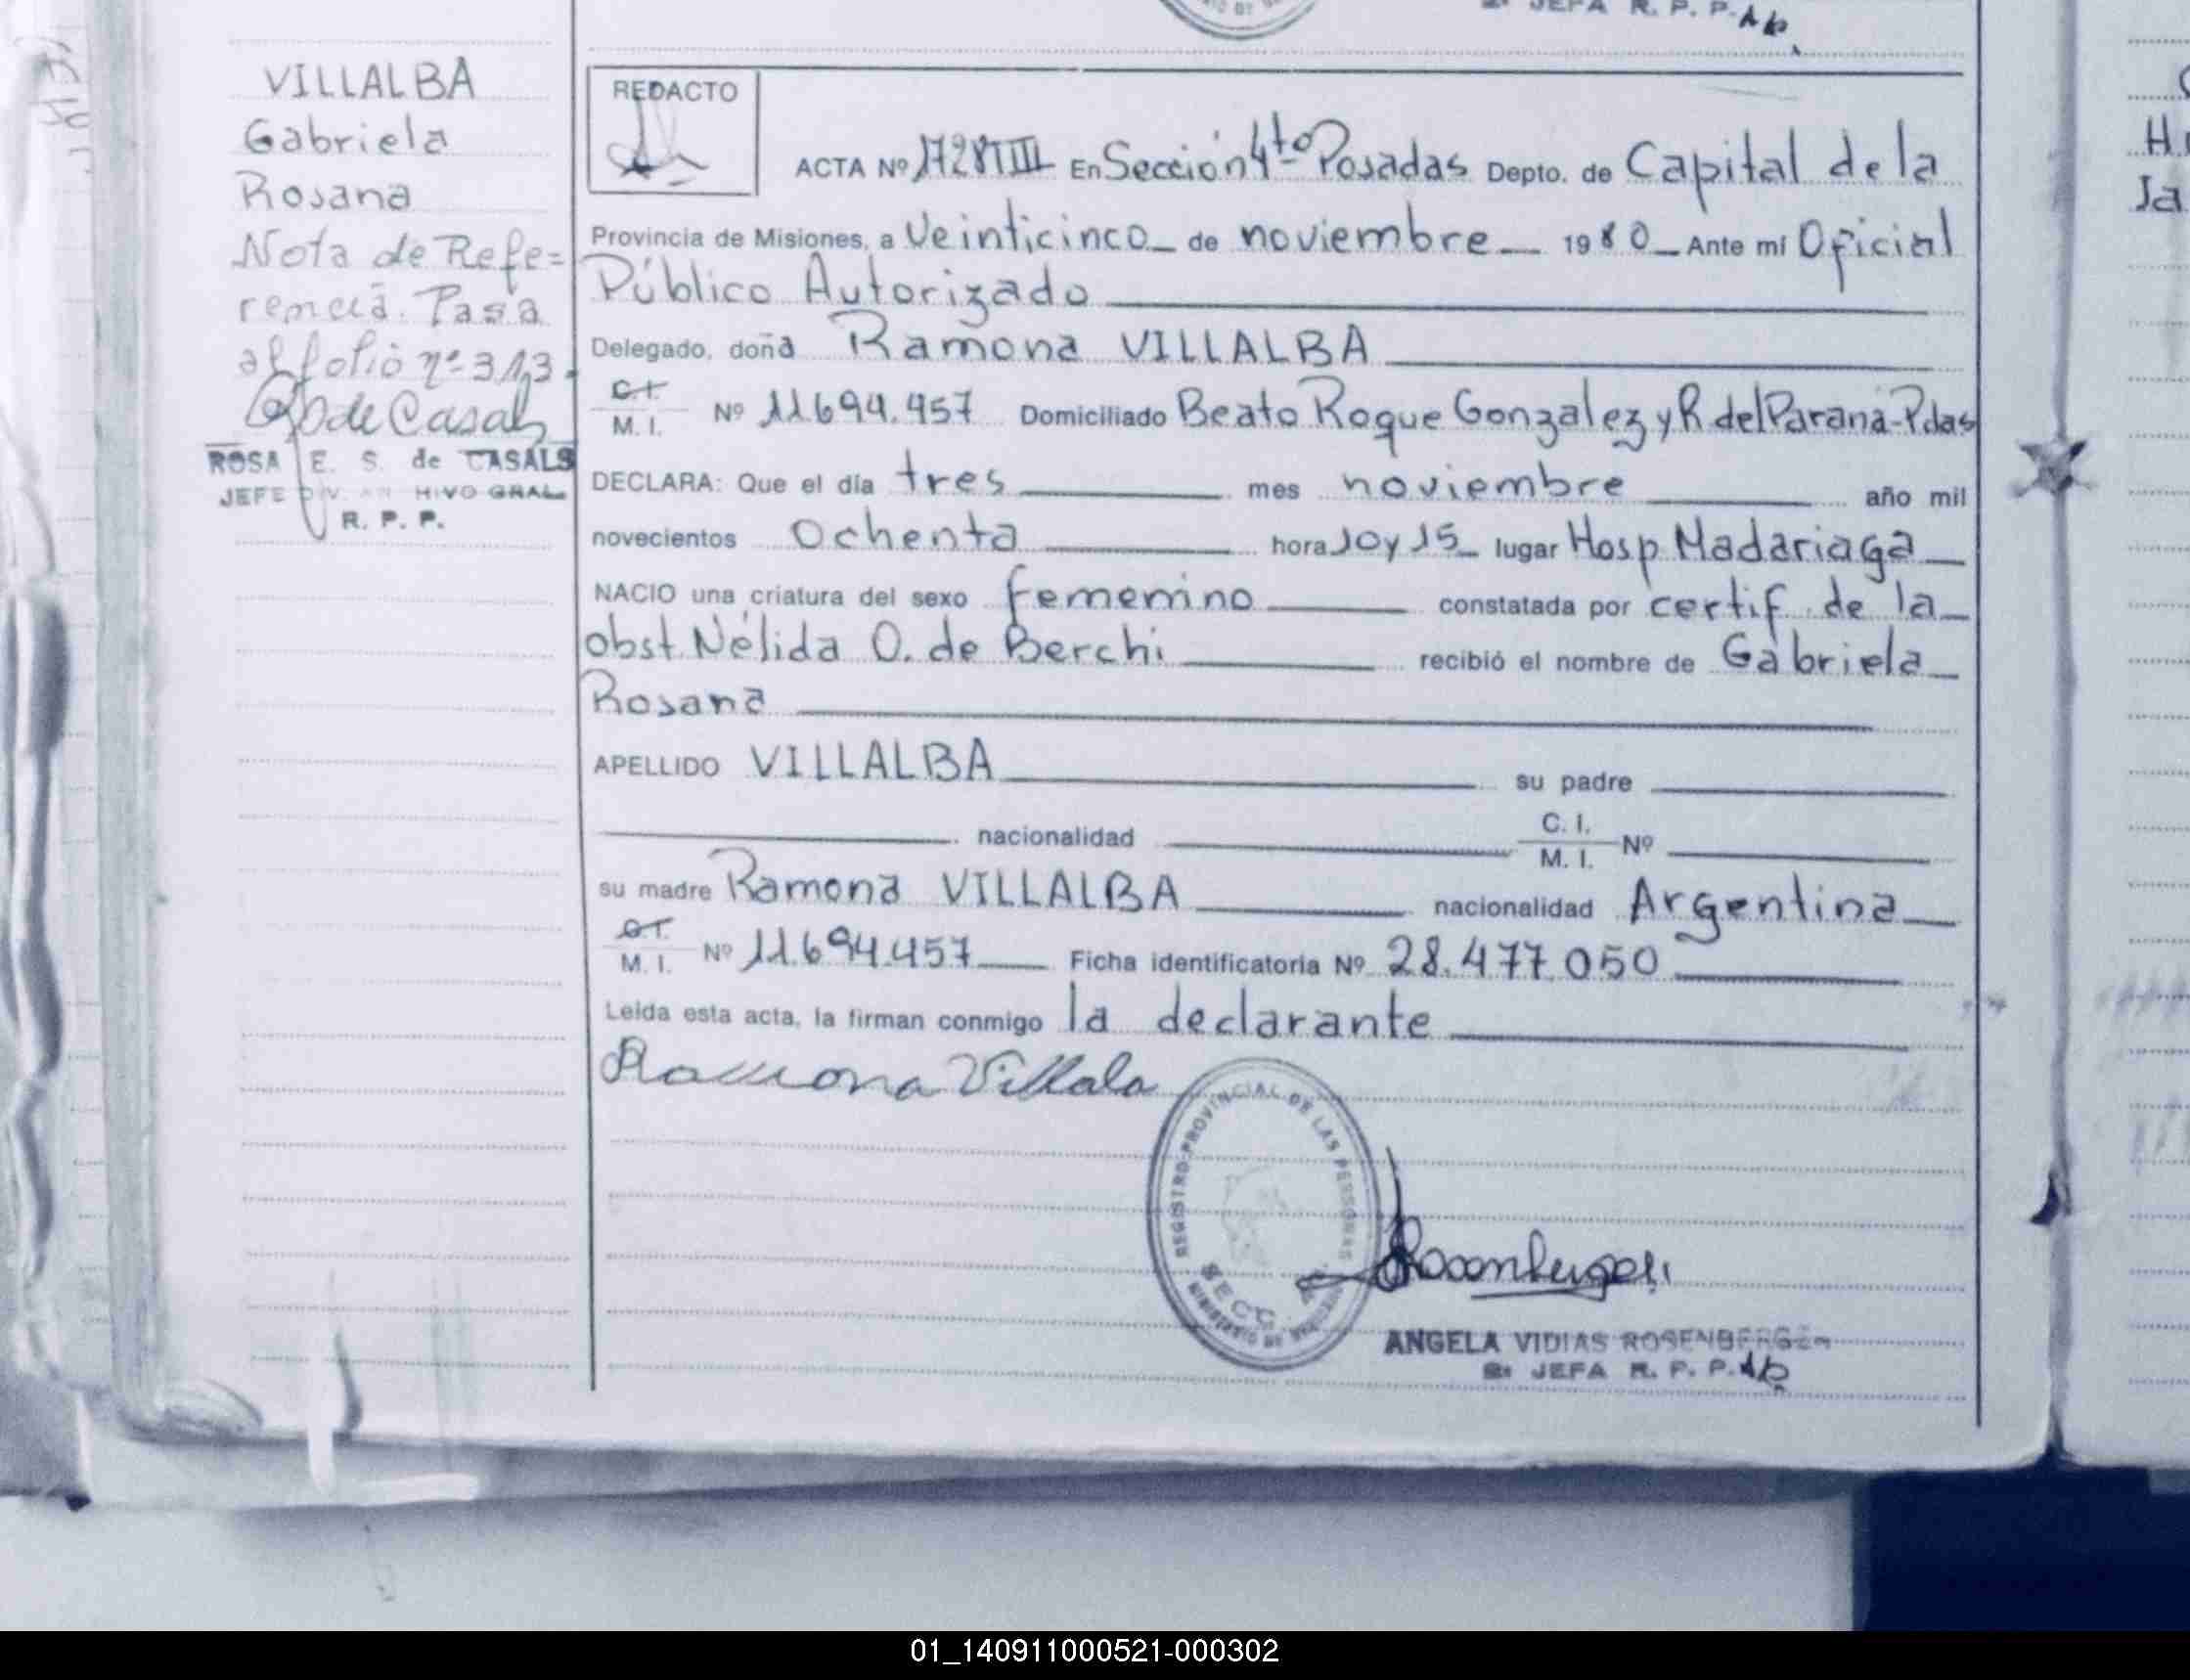 2ª JEFA R. P. P.
VILLALBA
Gabriela
Rosana
Nota de Refe=
rencia. Pasa
al folio nº 313.
ROSA E. S. de CASALS
JEFE DIV. ARCHIVO GRAL
R. P. P.
REDACTO
ACTA Nº 1728TIII En Sección 4ta Posadas Depto. de Capital de la
Provincia de Misiones, a Veinticinco de noviembre 1980 Ante mí Oficial
Público Autorizado
Delegado, doña Ramona VILLALBA
C. I.
M. I. Nº 11.694.457 Domiciliado Beato Roque Gonzalez y R. del Paraná - Pdas
DECLARA: Que el día tres mes noviembre año mil
novecientos Ochenta hora 10 y 15 lugar Hosp Madariaga
NACIO una criatura del sexo femenino constatada por certif. de la
obst. Nélida O. de Berchi recibió el nombre de Gabriela
Rosana
APELLIDO VILLALBA su padre
nacionalidad C. I.
M. I. Nº
su madre Ramona VILLALBA nacionalidad Argentina
C. I.
M. I. Nº 11.694.457 Ficha identificatoria Nº 28.477.050
Leída esta acta, la firman conmigo la declarante
Ramona Villala
REGISTRO PROVINCIAL DE LAS PERSONAS
SECC.
ANGELA VIDIAS ROSENBERGER
2ª JEFA R. P. P.
01_140911000521-000302